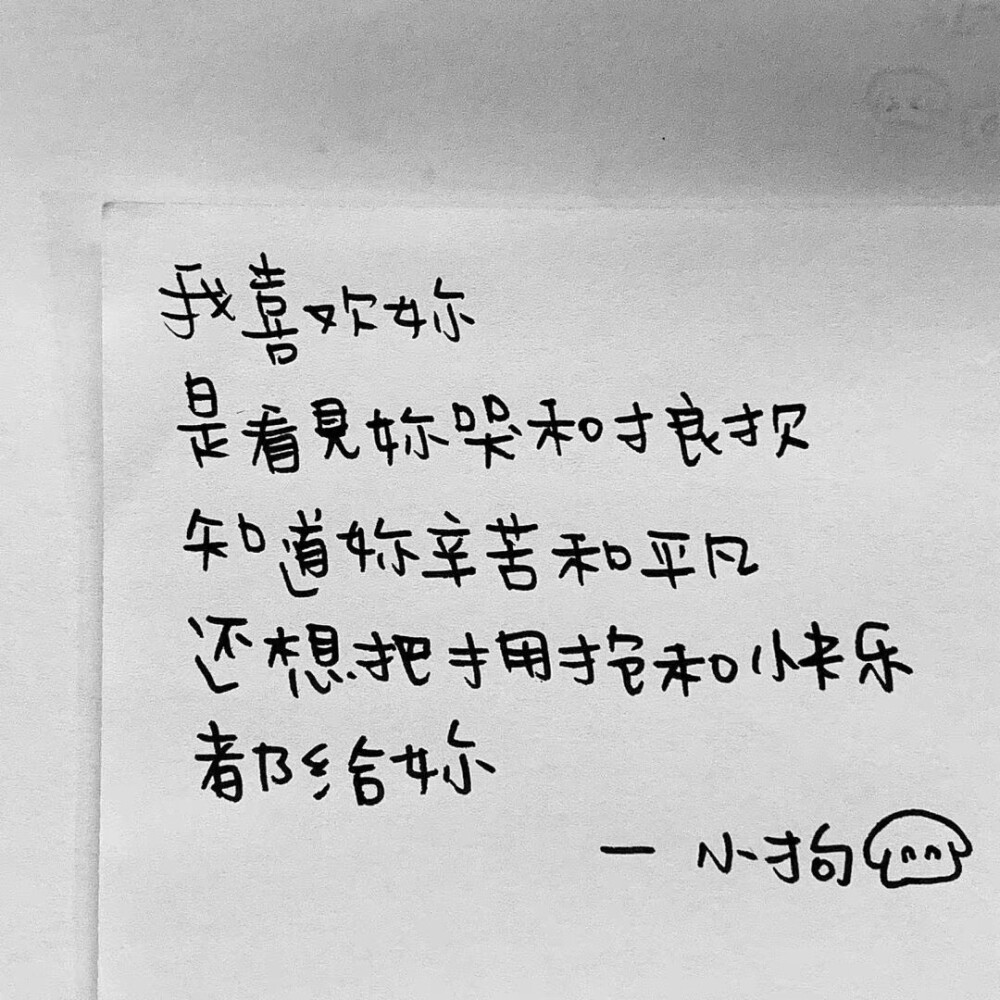 我喜欢妳
是看見妳哭和狼狈
知道妳辛苦和平凡
还想把拥抱和快乐
都给妳
一 小狗